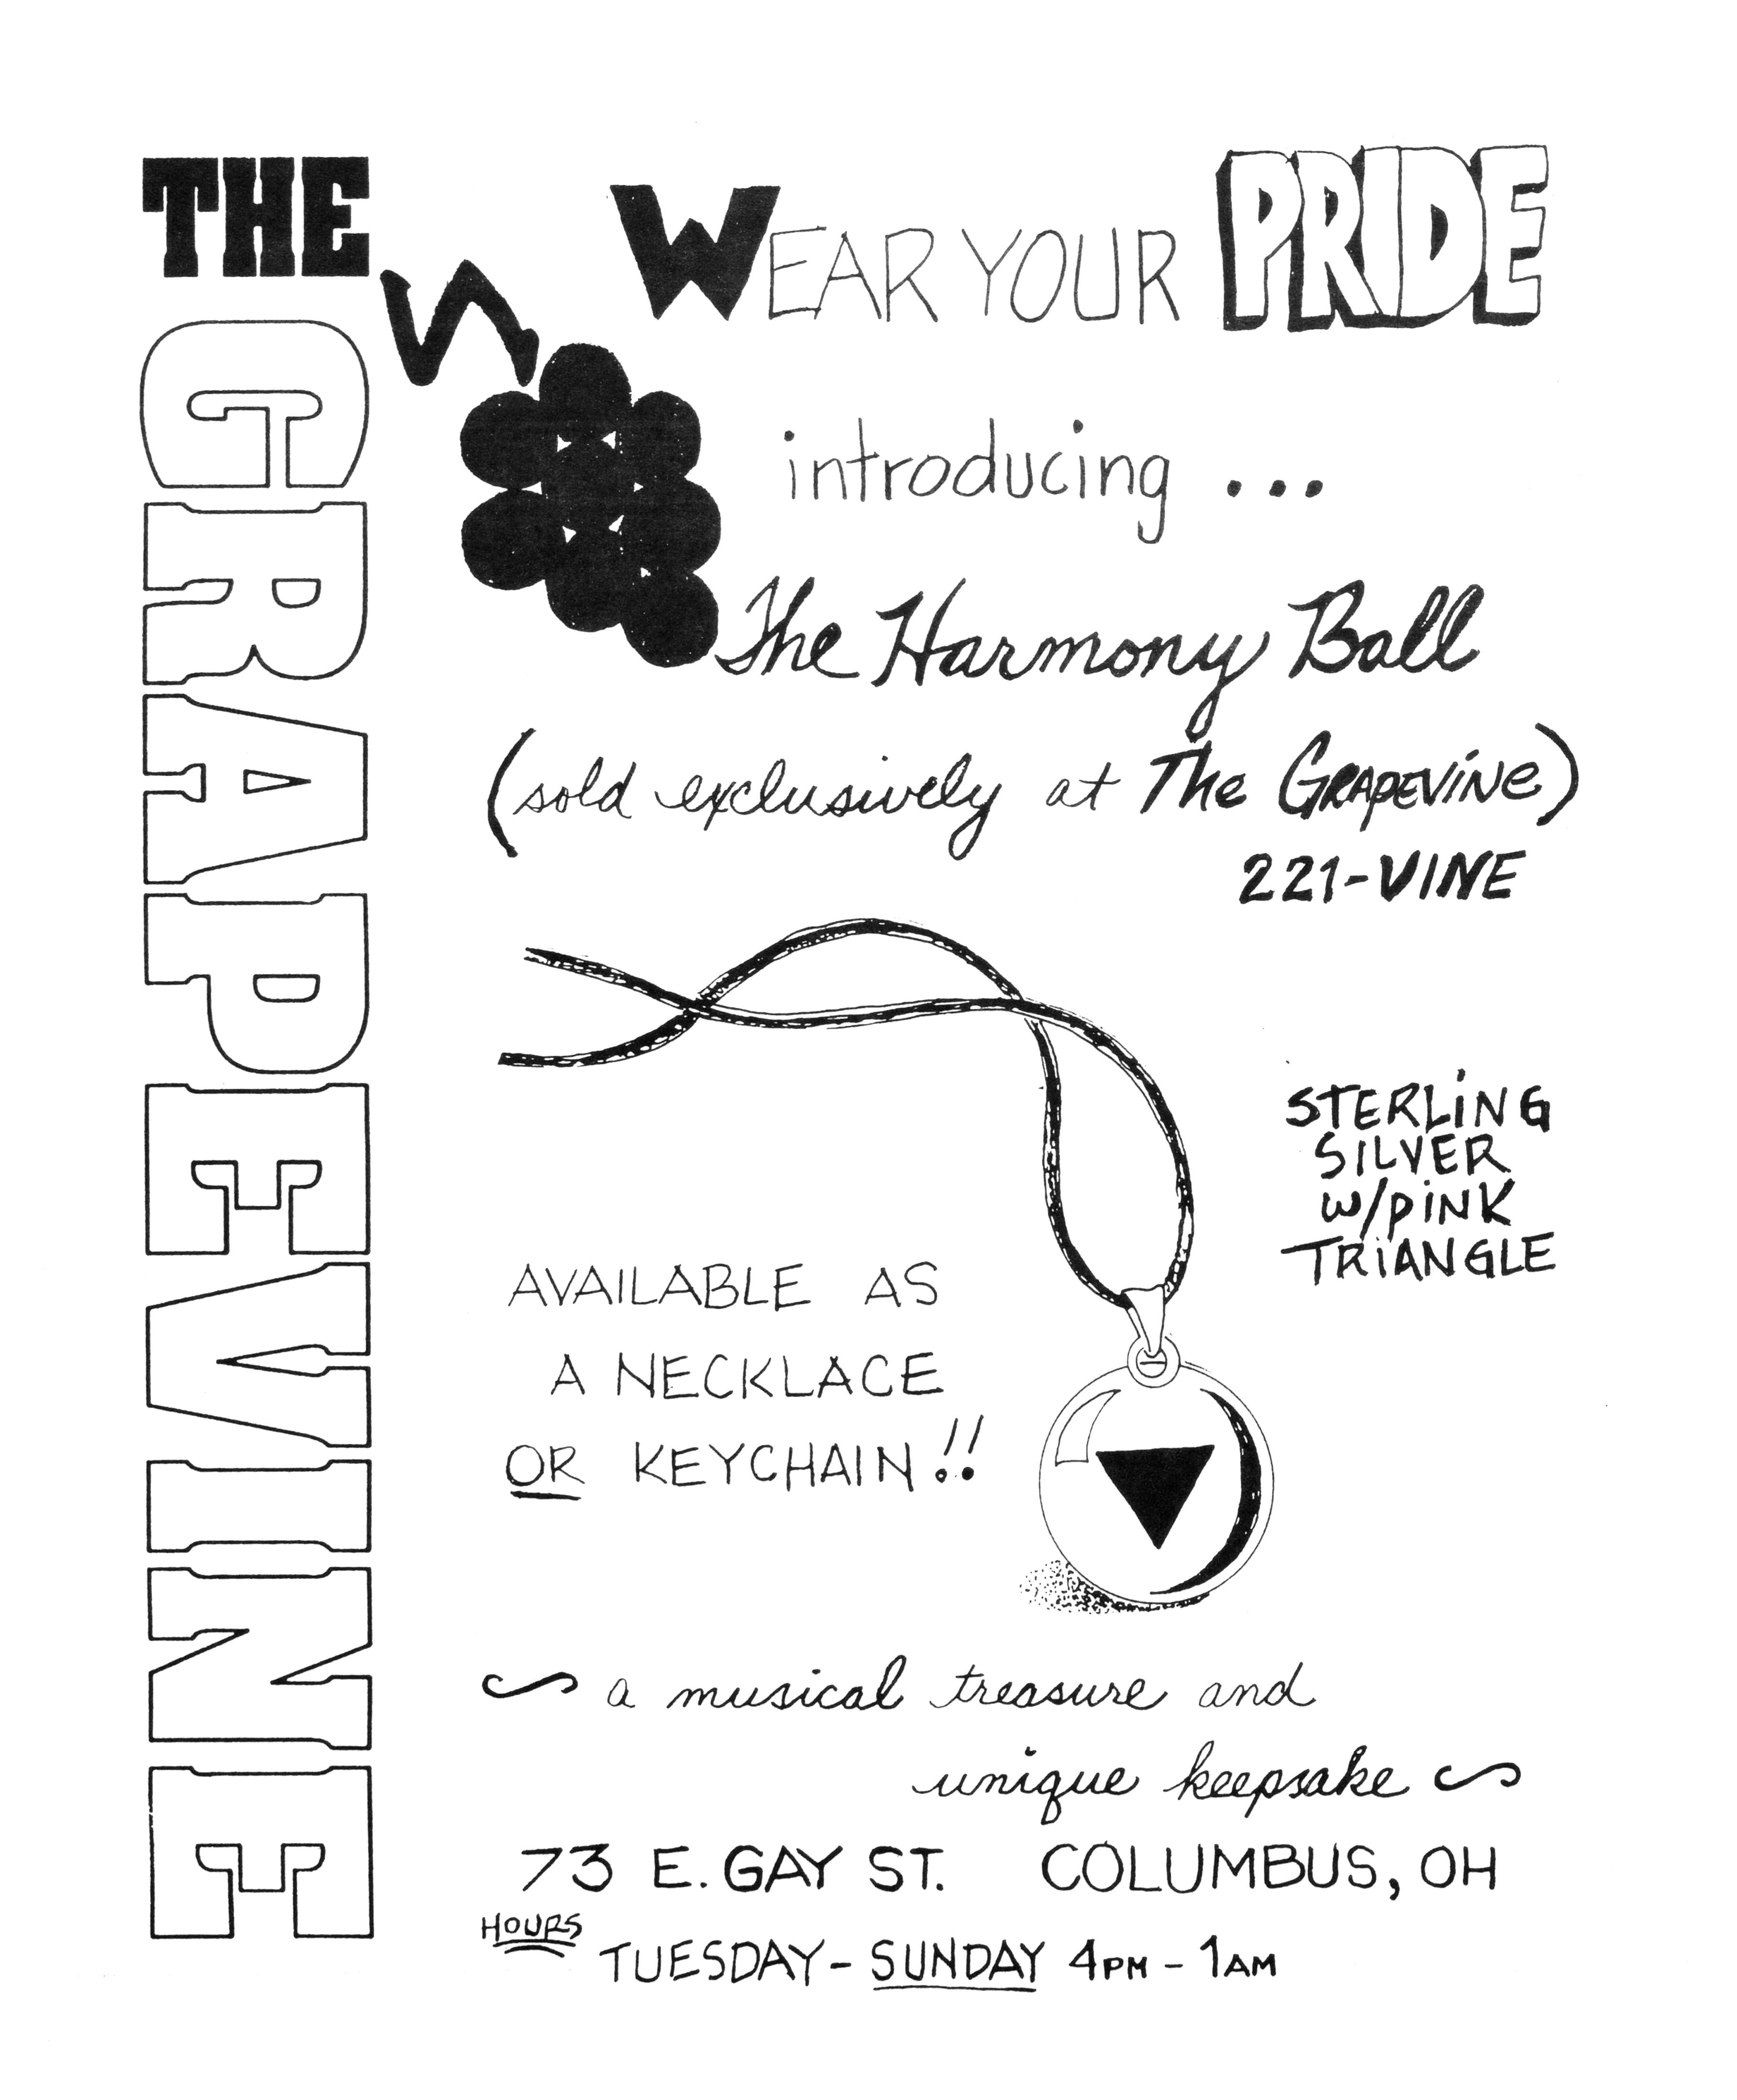 THE
GRAPEVINE
WEAR YOUR PRIDE
introducing ...
The Harmony Ball
(sold exclusively at The GRAPEViNe)
221-VINE
STERLiNG
SILVER
w/PiNK
TRiANGLE
AVAILABLE AS
A NECKLACE
OR KEYCHAIN!!
a musical treasure and
unique keepsake
73 E. GAY ST. COLUMBUS, OH
HOURS
TUESDAY - SUNDAY 4PM - 1AM